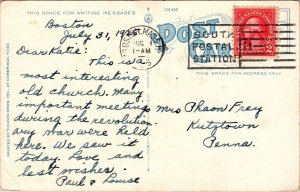 THIS SPACE FOR WRITING MESSAGES
Boston
July 31, 192
Dear Katie:
This is a
most interesting
old church. Many
important meetings
during the revolution
ary war were held
here. We saw it
today. Love and
best wishes,
Paul & Louise
POST
BOSTON, MASS.
AUG 1
1-AM
SOUTH
POSTAL
STATION
THIS SPACE FOR ADDRESS ONLY
Mrs Phaon Frey
Kutztown
Penna.